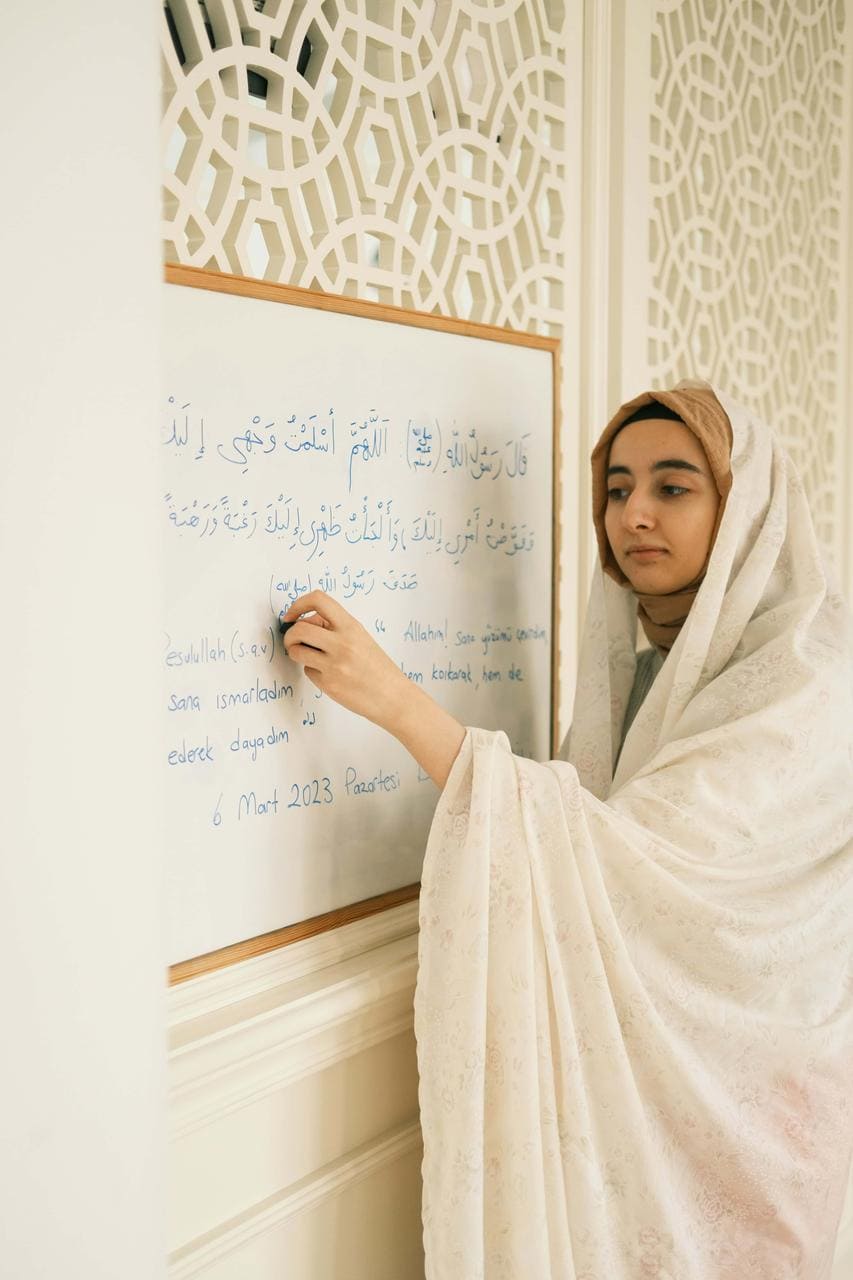 قَالَ رَسُولُ اللّٰهِ (ﷺ): اَللّٰهُمَّ أَسْلَمْتُ وَجْهِي إِلَيْكَ
وَفَوَّضْتُ أَمْرِي إِلَيْكَ، وَأَلْجَأْتُ ظَهْرِي إِلَيْكَ رَغْبَةً وَرَهْبَةً
صَدَقَ رَسُولُ اللّٰه (ﷺ)
esulullah (s.a.v) “ Allahım! sana yüzümü çevirdim,
sana ısmarladım, hem korkarak, hem de
ederek dayadım ”
6 Mart 2023 Pazartesi